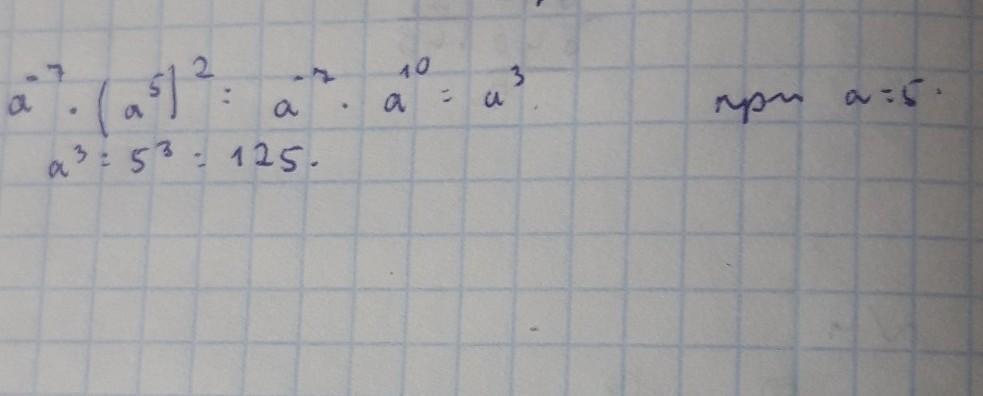 a⁻⁷ · (a⁵)² = a⁻⁷ · a¹⁰ = a³. при a=5.
a³ = 5³ = 125.